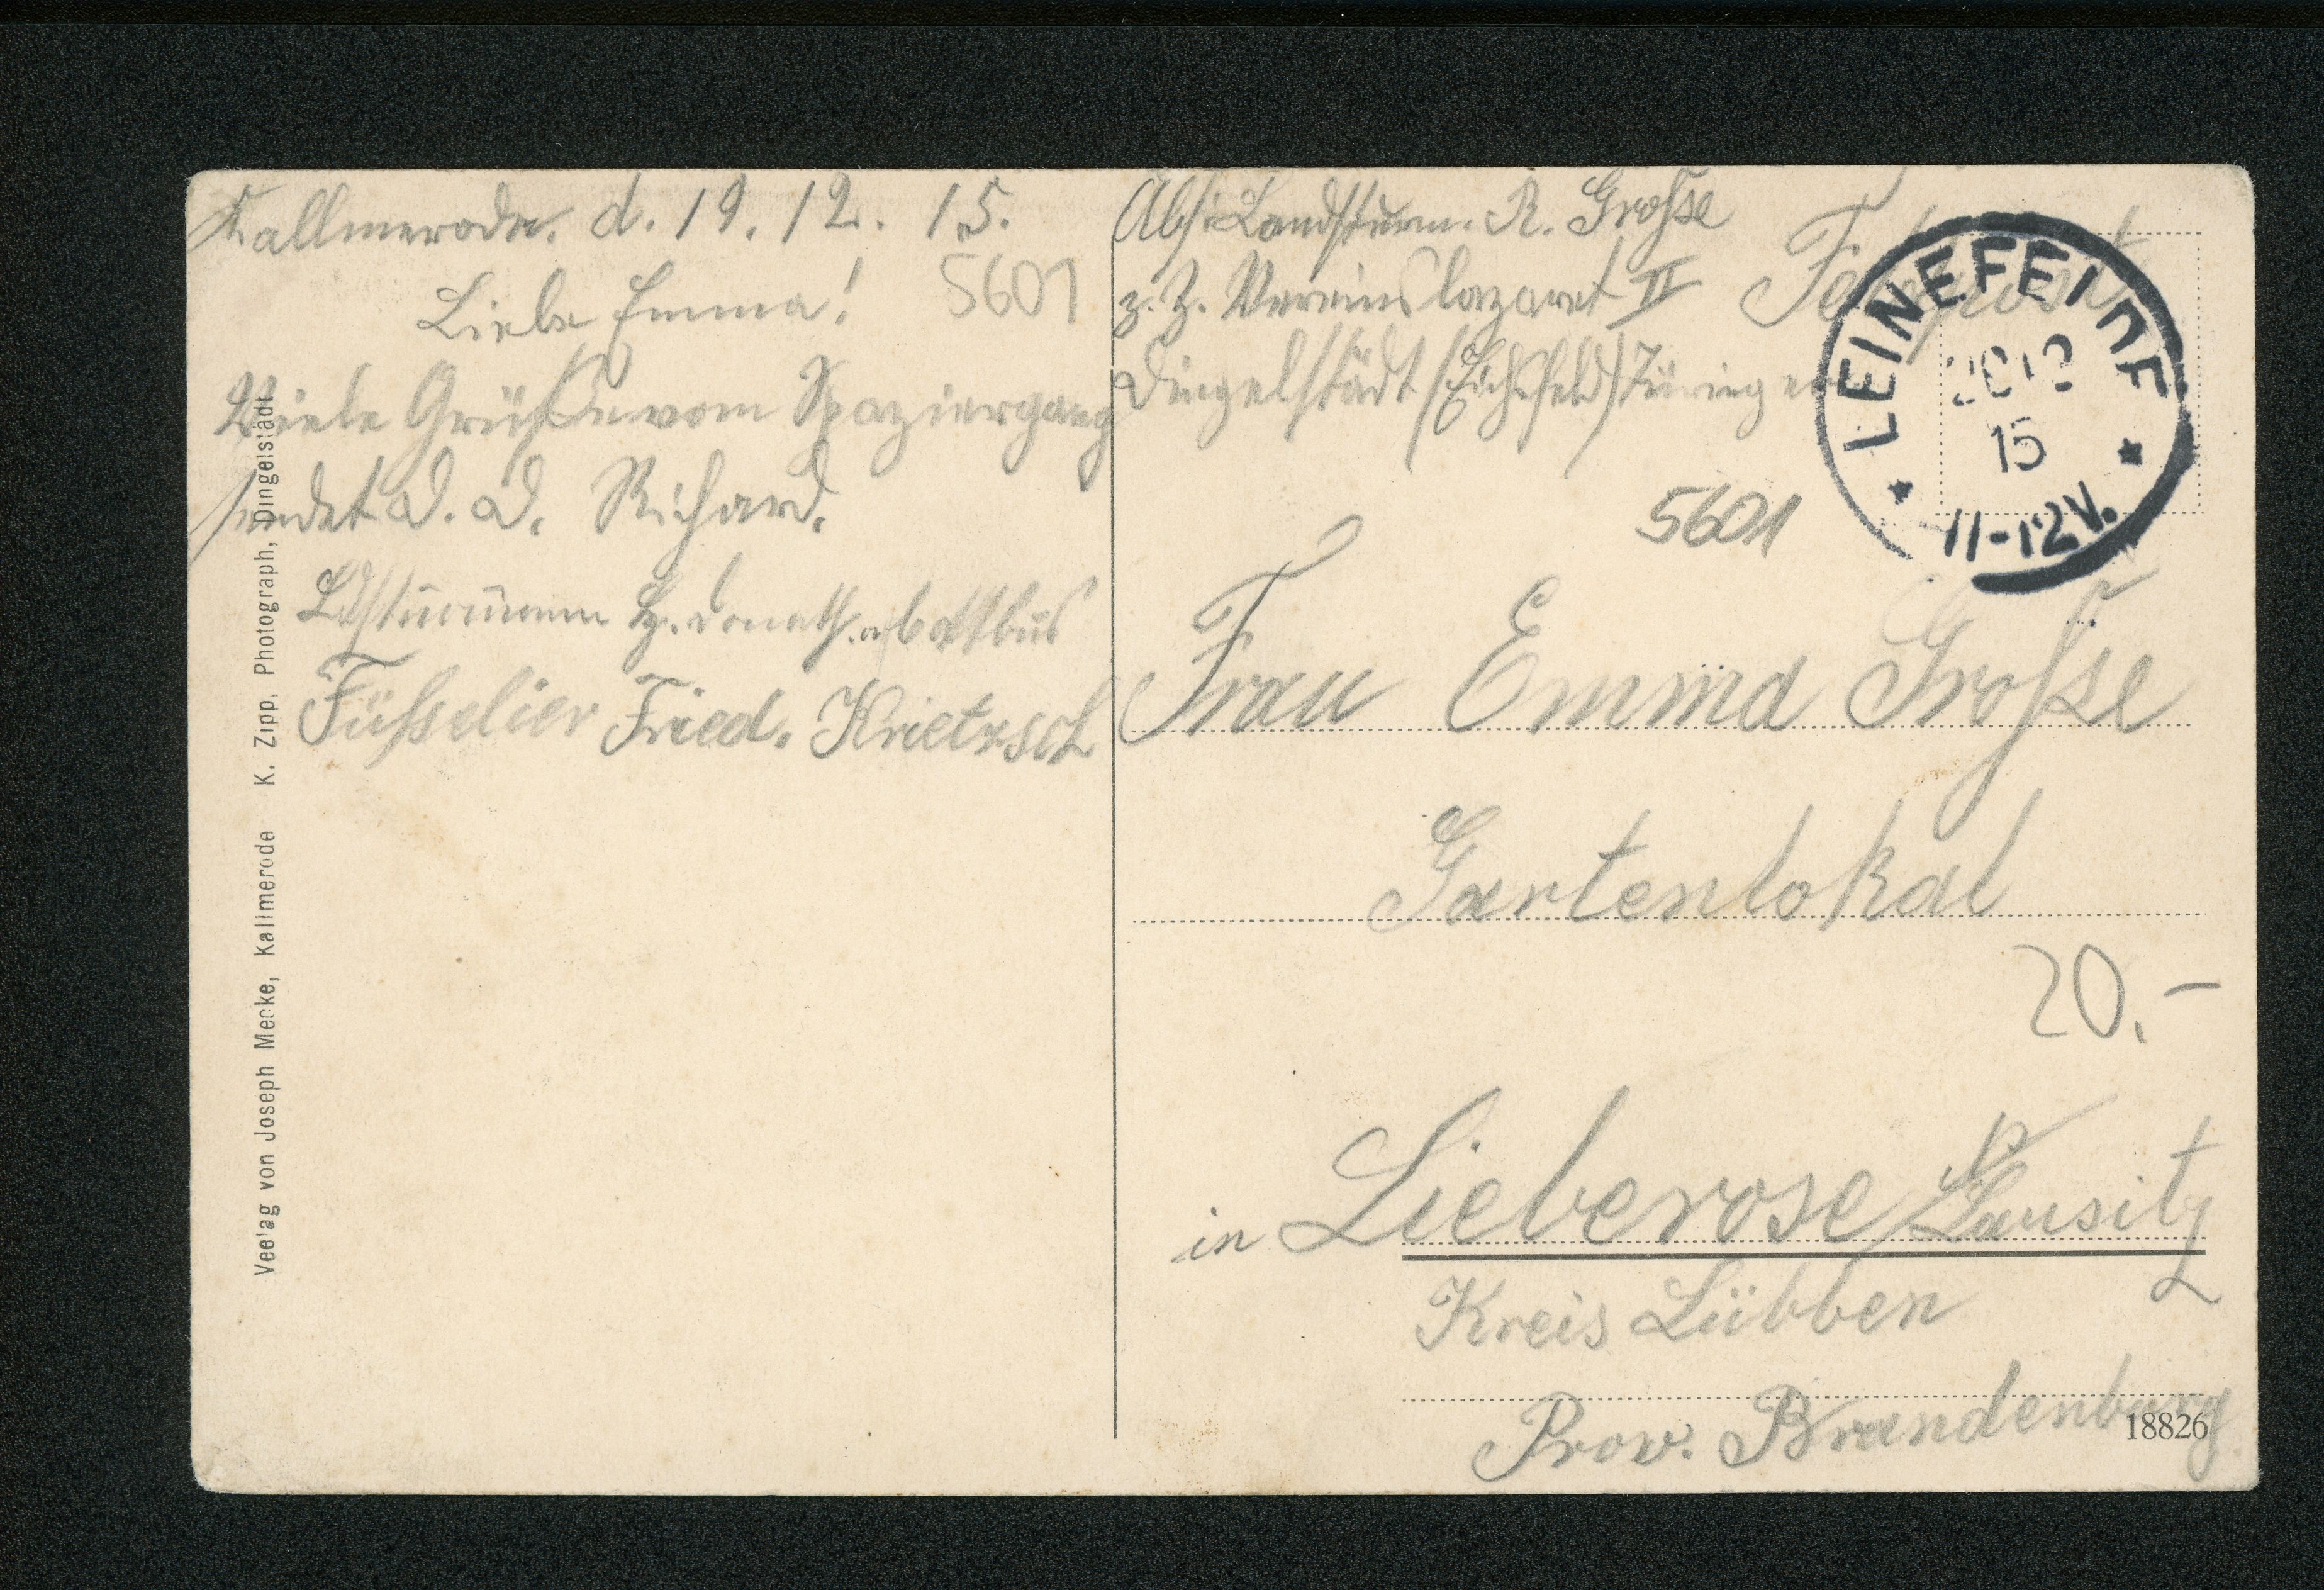 Kallmerode. d. 19. 12. 15.
Liebe Emma!
5601
Viele Grüße vom Spaziergang
sendet D. D. Richard.
Ldsturmmann Hz. Donath. a/ Cottbus
Füsselier Fried. Krietzsch
Veelag von Joseph Mecke, Kallmerode K. Zipp, Photograph, Dingelstädt
Abs. Landsturm. R. Grosse
z. Z. Vereinslazaret II
Dingelstädt (Eichsfeld) Türingen
Feldpost
LEINEFELDE
20 12
15
11-12V.
5601
Frau Emma Grosse
Gartenlokal
20.-
in Lieberose Lausitz
Kreis Lübben
Prov. Brandenburg
18826